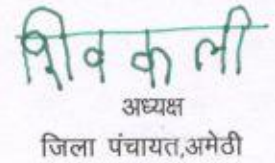 शिव कली
अध्यक्ष
जिला पंचायत,अमेठी